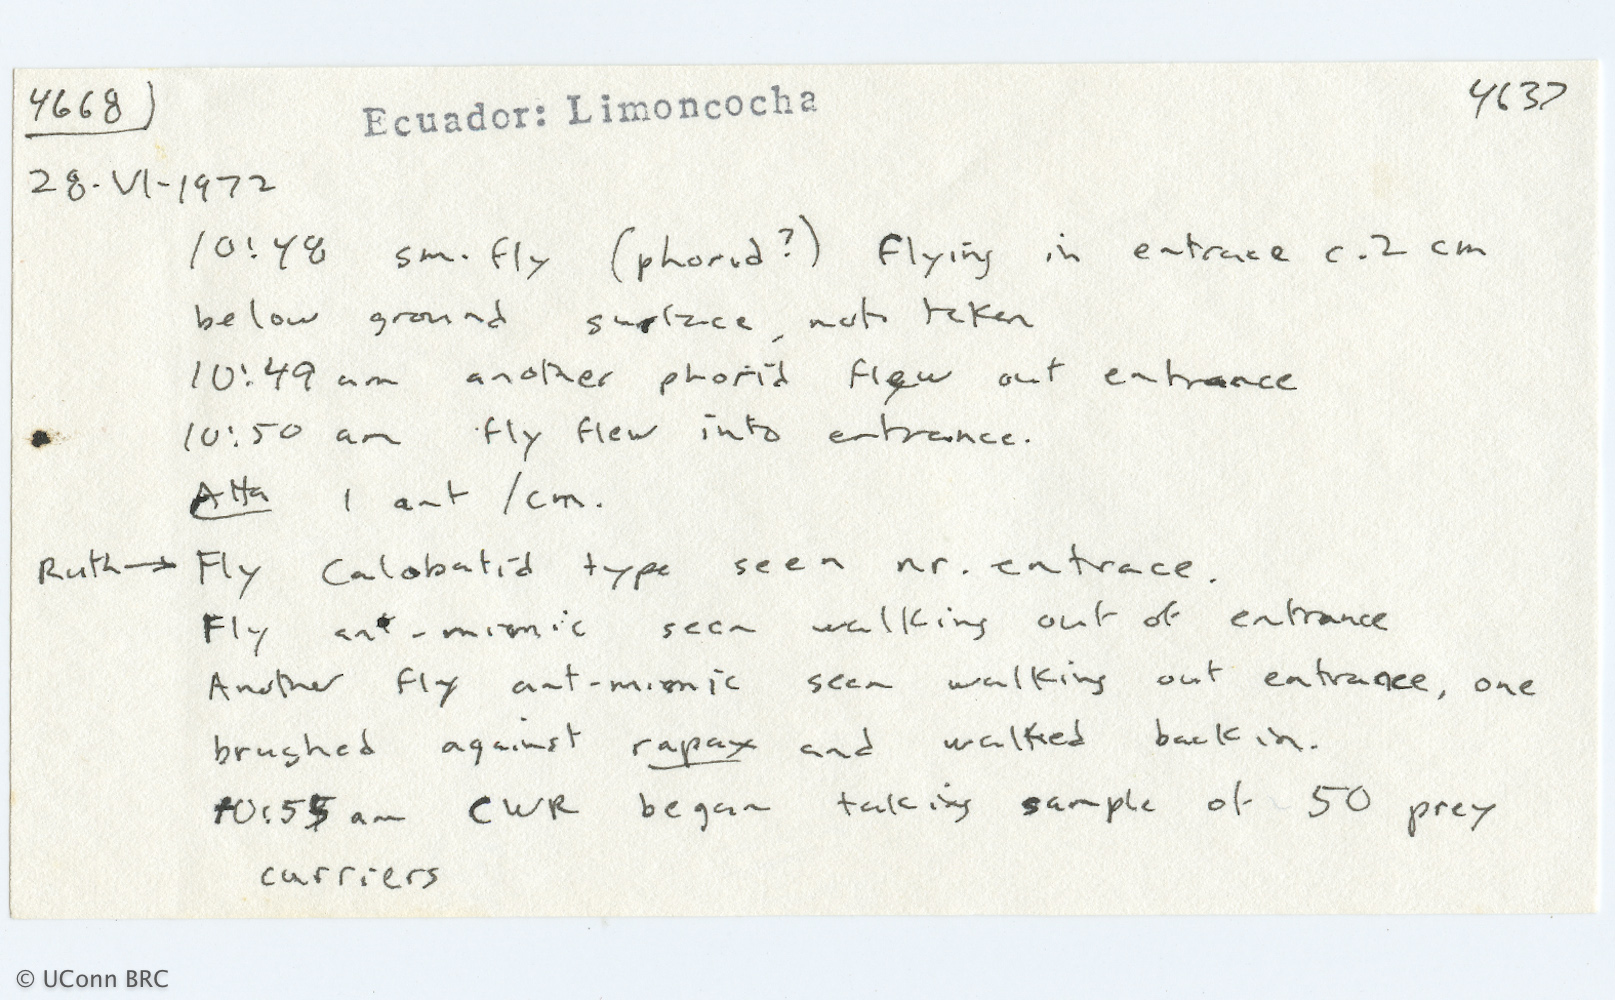 4668) Ecuador: Limoncocha 4637
28-VI-1972
10:48 sm. fly (phorid?) flying in entrace c. 2 cm
below ground surface, not taken
10:49 am another phorid flew out entrance
10:50 am fly flew into entrance.
Atta 1 ant /cm.
Ruth → Fly Calobatid type seen nr. entrace.
Fly ant-mimic seen walking out of entrance
Another fly ant-mimic seen walking out entrance, one
brushed against rapax and walked back in.
10:55 am CWR began taking sample of 50 prey
carriers
© UConn BRC